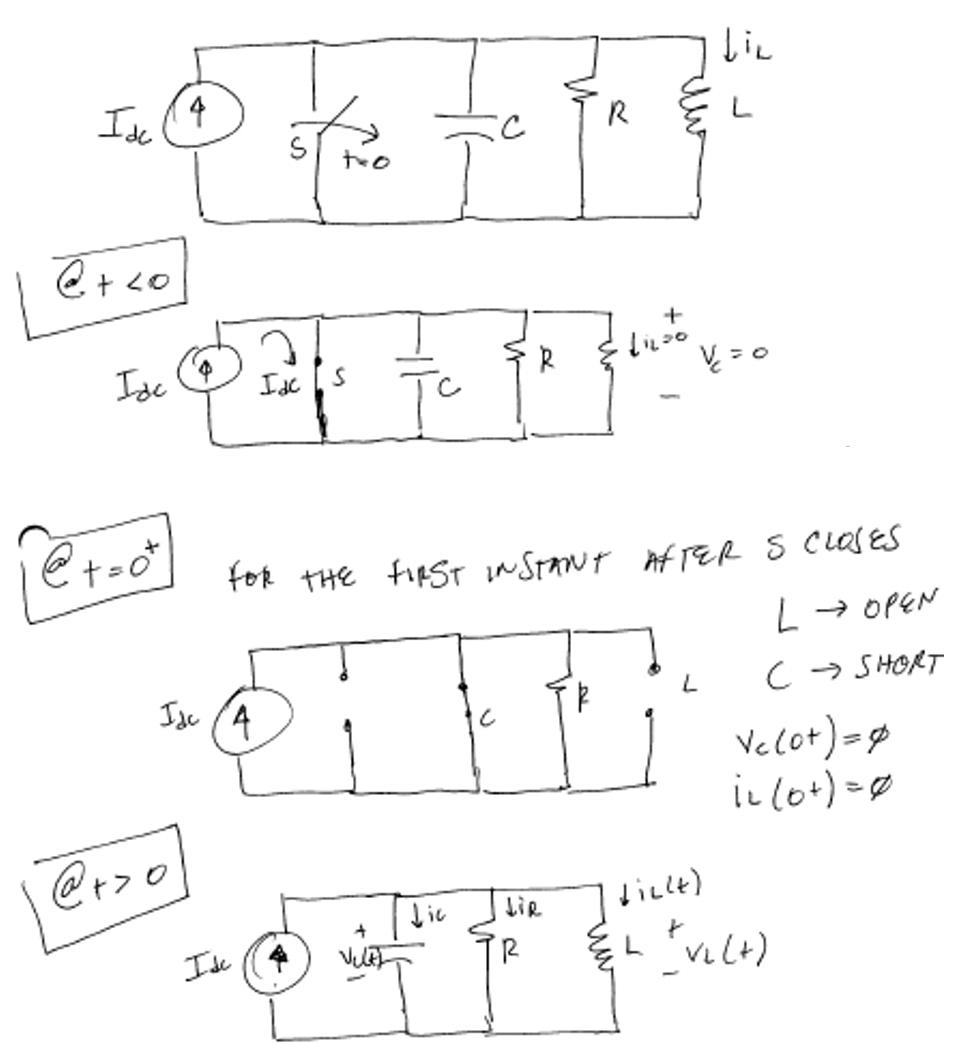 ↓iL
Idc S t=0 C R L
@ t <0
Idc Idc S C R ↓iL=0 + Vc = 0 −
@ t=0+ FOR THE FIRST INSTANT AFTER S CLOSES
L → OPEN
C → SHORT
Idc C R L
Vc(0+)=∅
iL(0+)=∅
@ t> 0
Idc + Vc(t) − ↓ic ↓iR R ↓iL(t) L + VL(t) −